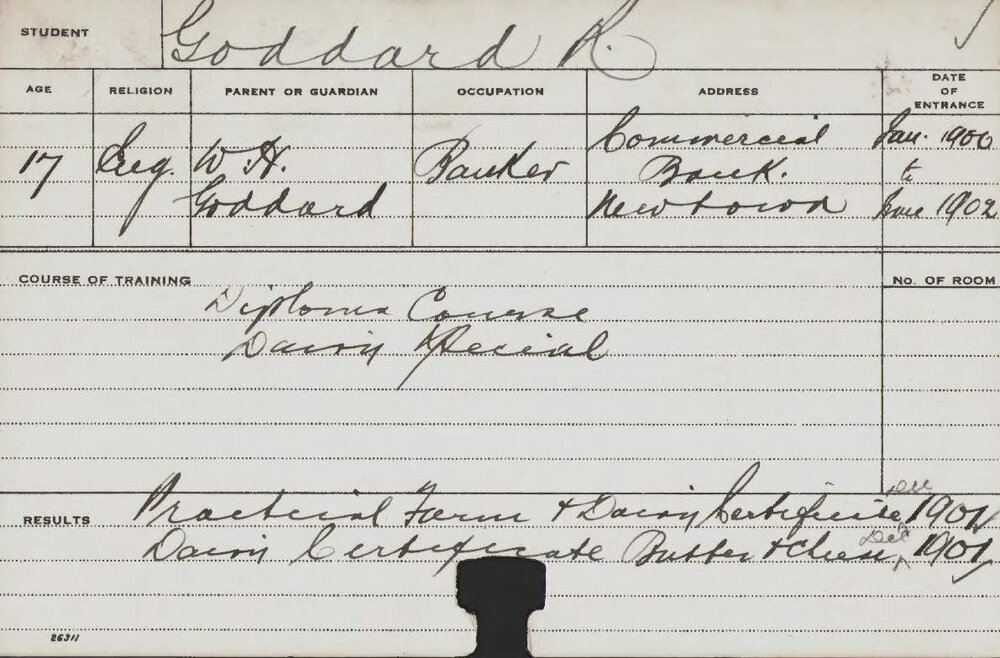 STUDENT Goddard R.
AGE RELIGION PARENT OR GUARDIAN OCCUPATION ADDRESS DATE OF ENTRANCE
17 Eng. W. H. Goddard Banker Commercial Bank. Newtown Jan. 1900 to June 1902
COURSE OF TRAINING
No. OF ROOM
Diploma Course
Dairy Special
RESULTS Practical Farm & Dairy Certificate Dec 1901
Dairy Certificate Butter & Cheese Dec 1901
26311